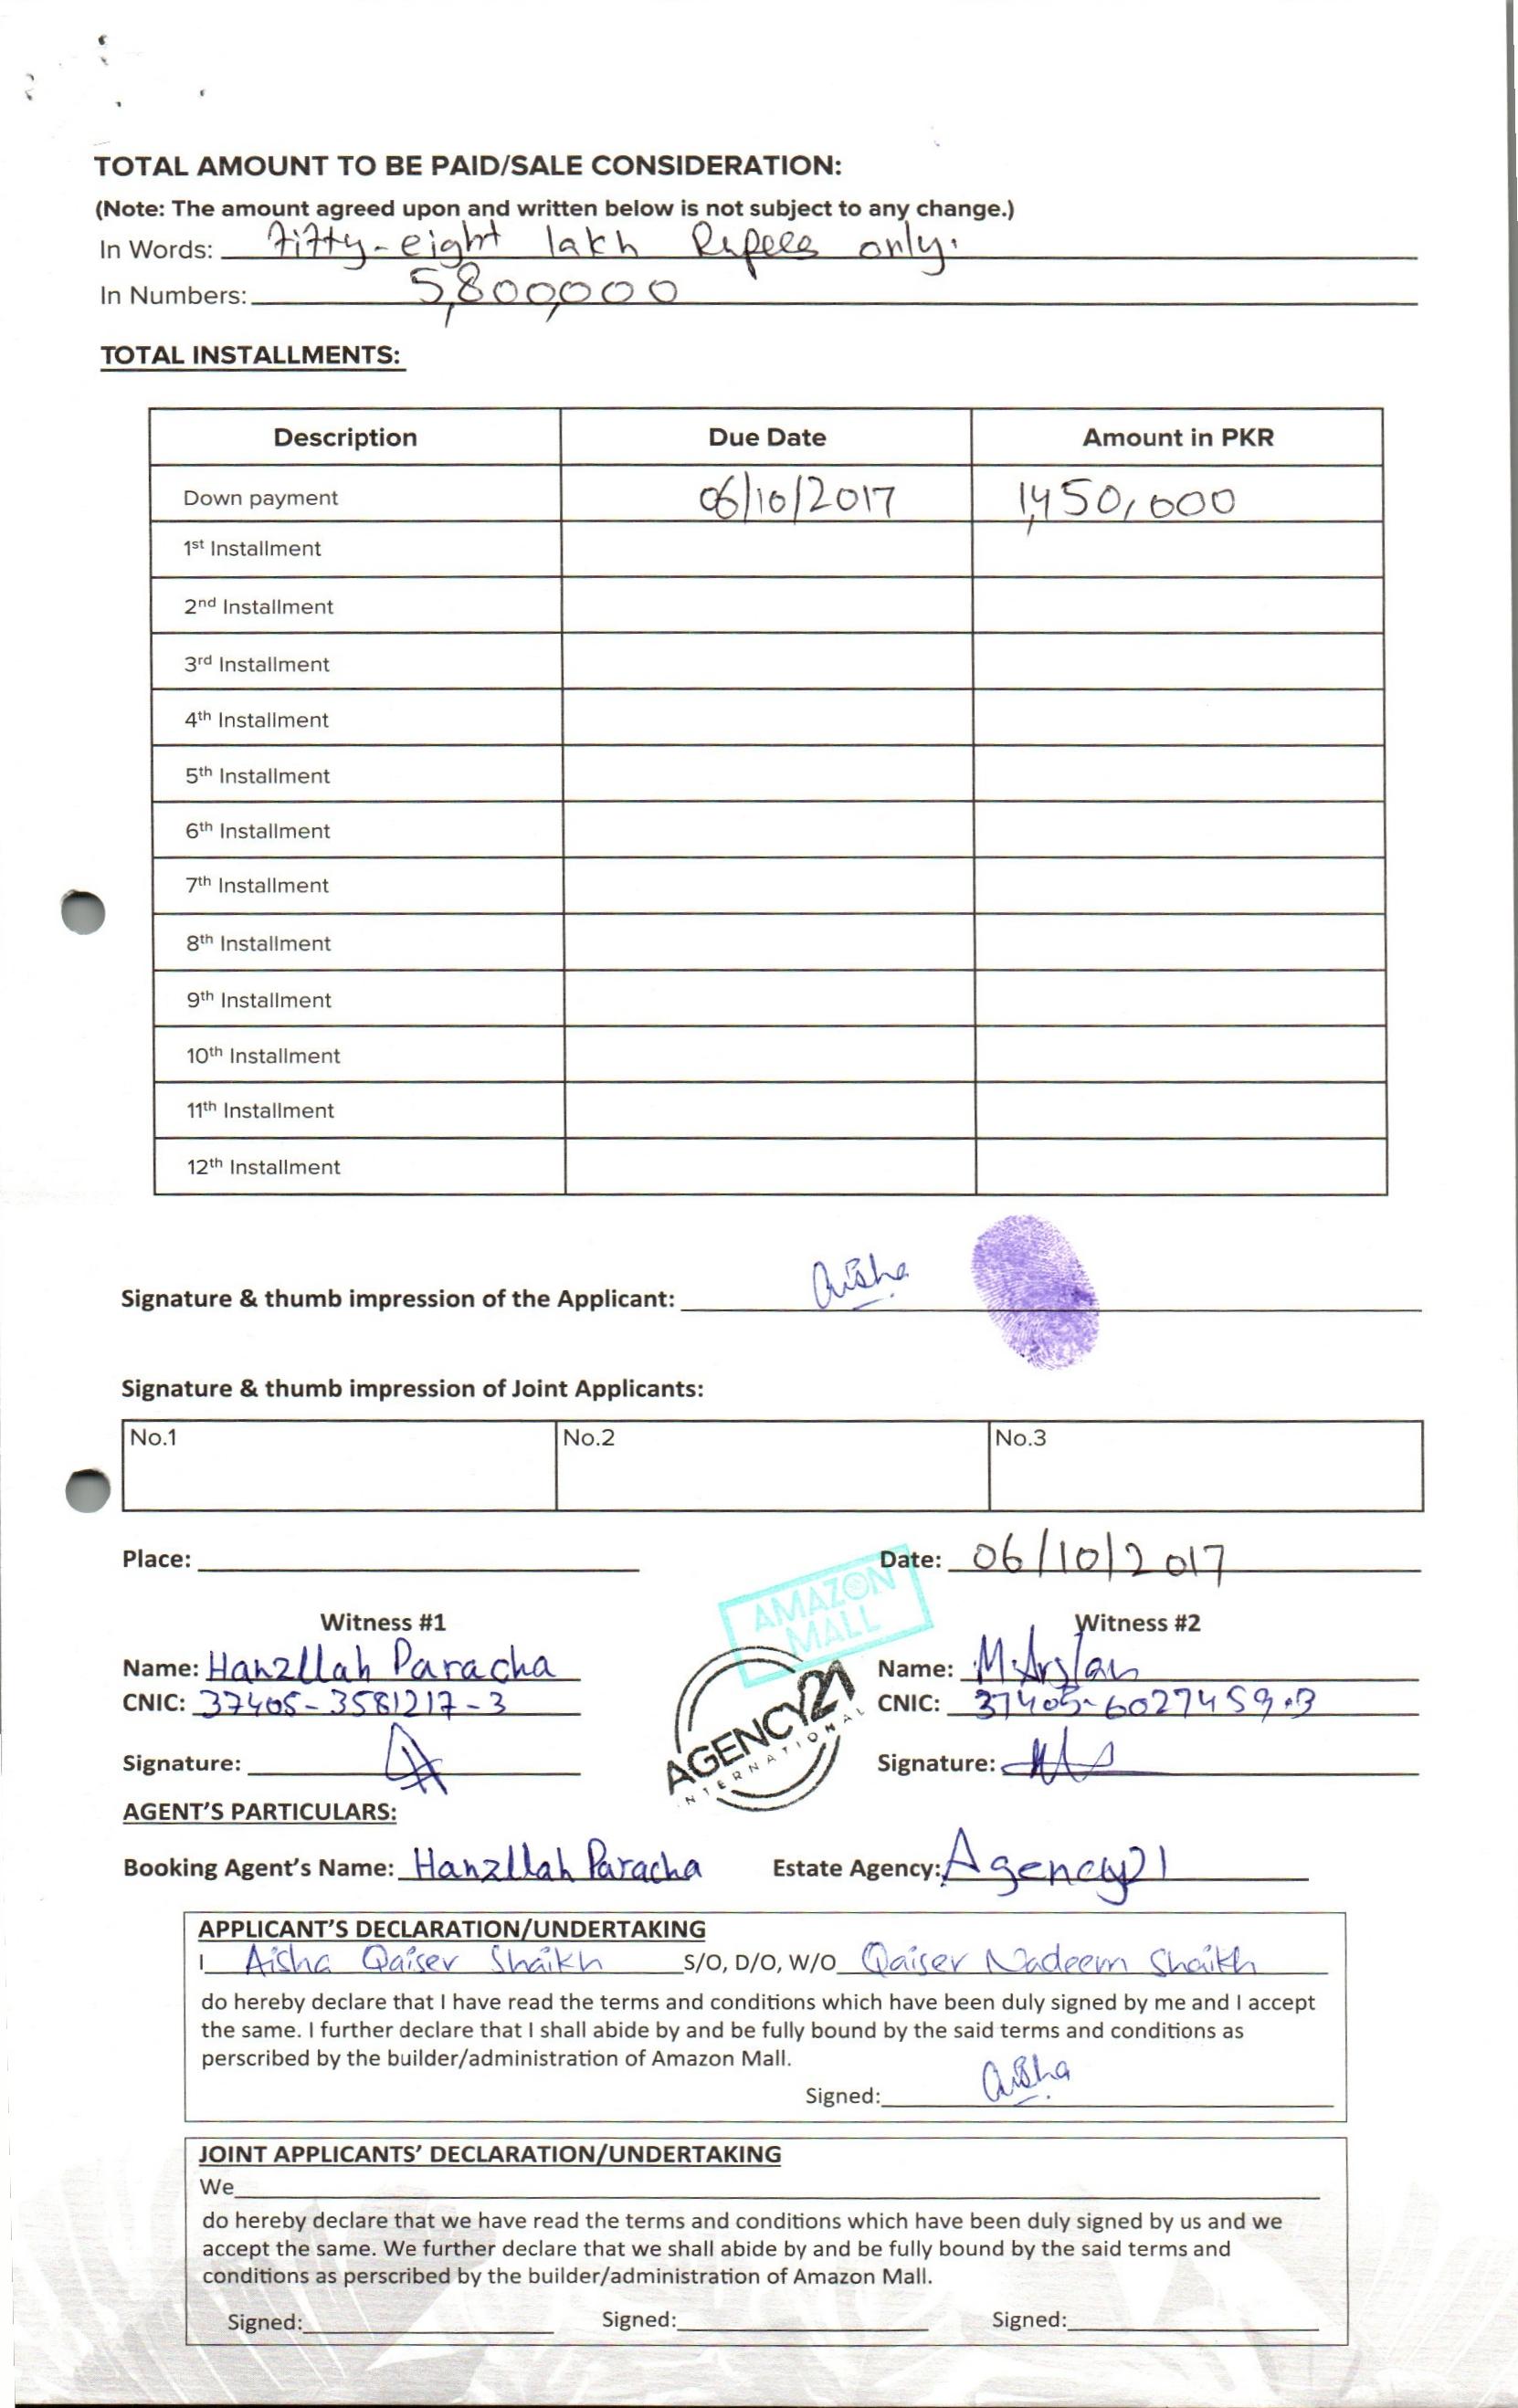 TOTAL AMOUNT TO BE PAID/SALE CONSIDERATION:
(Note: The amount agreed upon and written below is not subject to any change.)
In Words: Fifty-eight lakh Rupees only.
In Numbers: 5,800,000
TOTAL INSTALLMENTS:
Description Due Date Amount in PKR
Down payment 06/10/2017 1,450,000
1st Installment
2nd Installment
3rd Installment
4th Installment
5th Installment
6th Installment
7th Installment
8th Installment
9th Installment
10th Installment
11th Installment
12th Installment
Signature & thumb impression of the Applicant: Aisha
Signature & thumb impression of Joint Applicants:
No.1 No.2 No.3
Place: Date: 06/10/2017
AMAZON
MALL
Witness #1 Witness #2
Name: Hanzllah Paracha Name: M.Arslan
CNIC: 37405-3581217-3 CNIC: 37405-6027459-3
AGENCY21
INTERNATIONAL
Signature: Signature:
AGENT'S PARTICULARS:
Booking Agent's Name: Hanzllah Paracha Estate Agency: Agency21
APPLICANT'S DECLARATION/UNDERTAKING
I Aisha Qaiser Shaikh S/O, D/O, W/O Qaiser Nadeem Shaikh
do hereby declare that I have read the terms and conditions which have been duly signed by me and I accept
the same. I further declare that I shall abide by and be fully bound by the said terms and conditions as
perscribed by the builder/administration of Amazon Mall.
Signed: Aisha
JOINT APPLICANTS' DECLARATION/UNDERTAKING
We
do hereby declare that we have read the terms and conditions which have been duly signed by us and we
accept the same. We further declare that we shall abide by and be fully bound by the said terms and
conditions as perscribed by the builder/administration of Amazon Mall.
Signed: Signed: Signed: